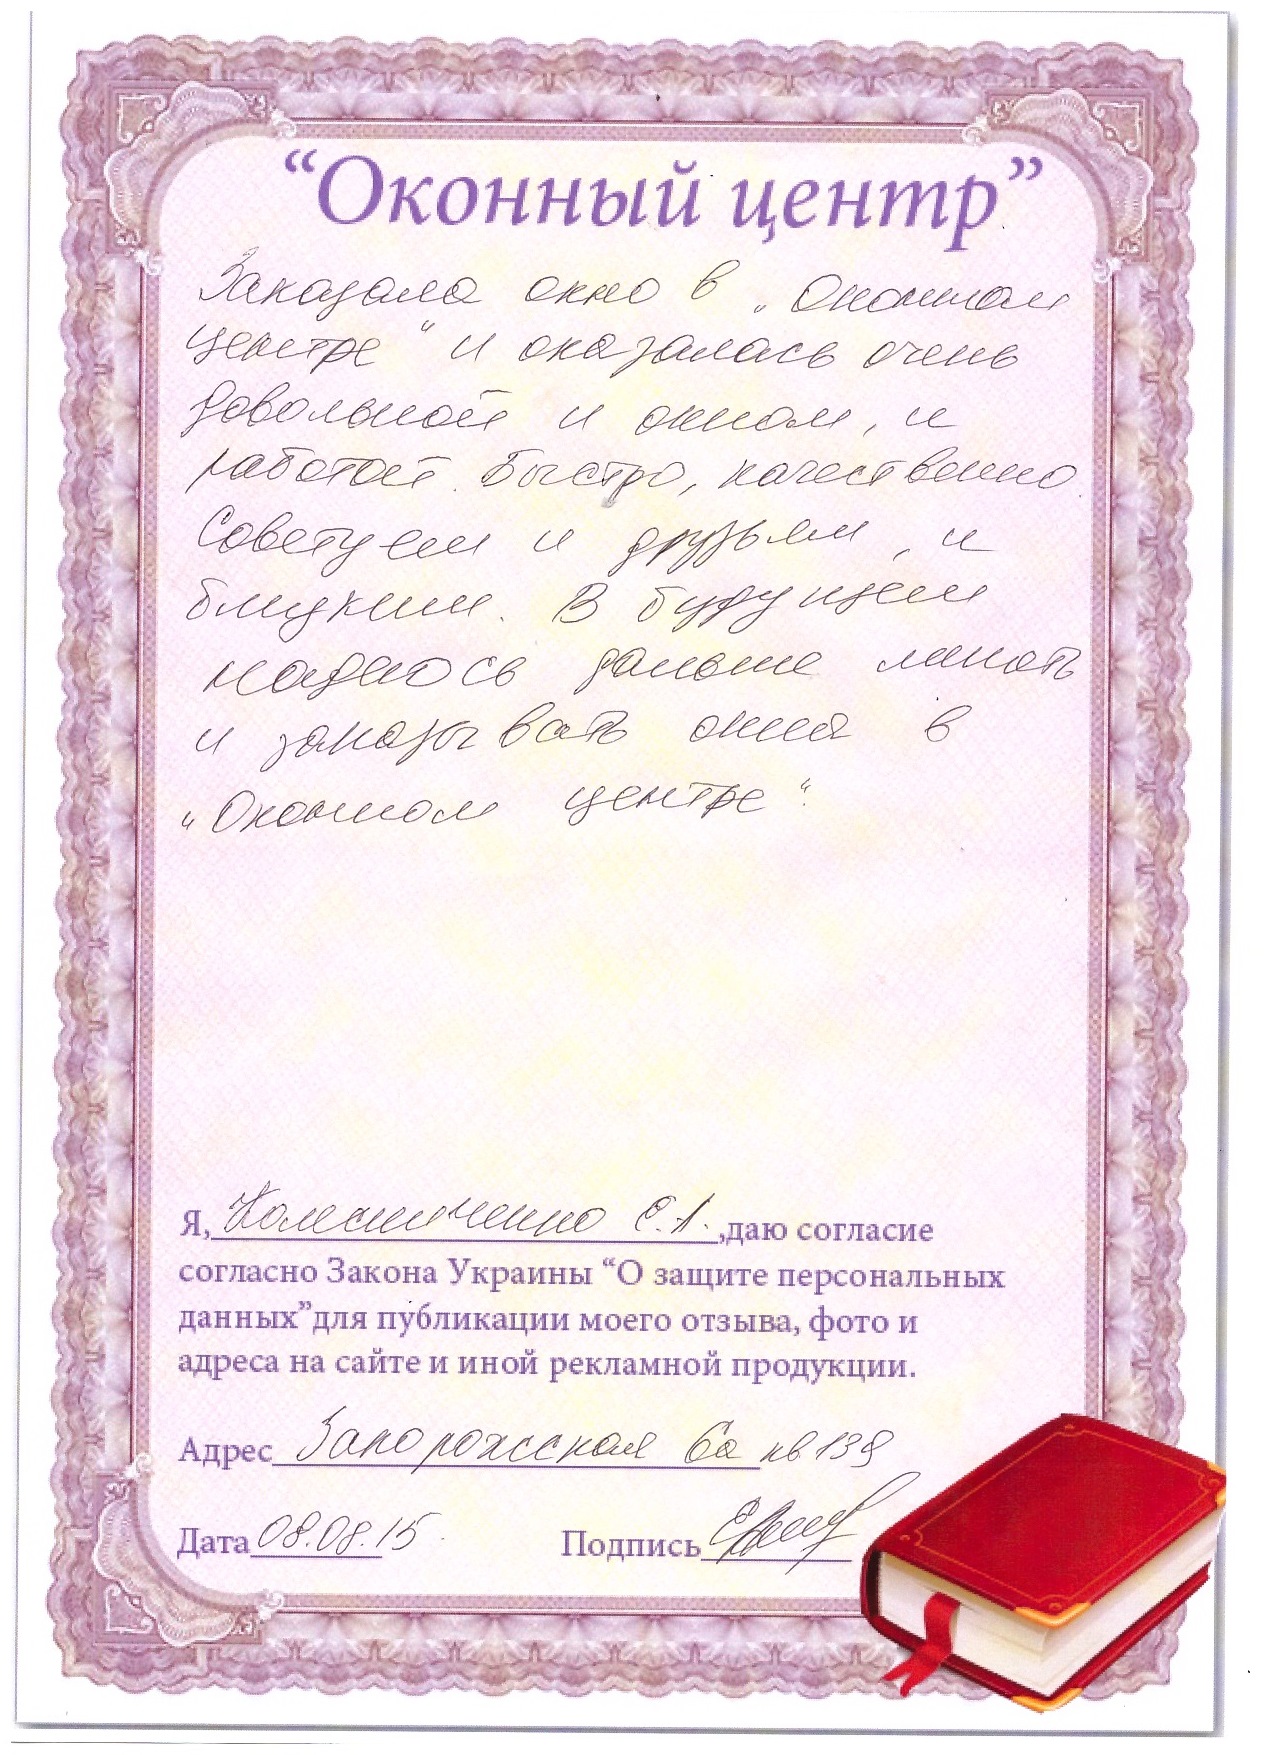 “Оконный центр”
Заказала окно в „Оконном
центре“ и оказалась очень
довольной и окном, и
работой. Быстро, качественно.
Советуем и друзьям, и
близким. В будущем
надеюсь дальше менять
и заказывать окна в
„Оконном центре“.
Я, Колесниченко С.А. ,даю согласие
согласно Закона Украины “О защите персональных
данных”для публикации моего отзыва, фото и
адреса на сайте и иной рекламной продукции.
Адрес Запорожская 6а кв 139
Дата 08.08.15 Подпись